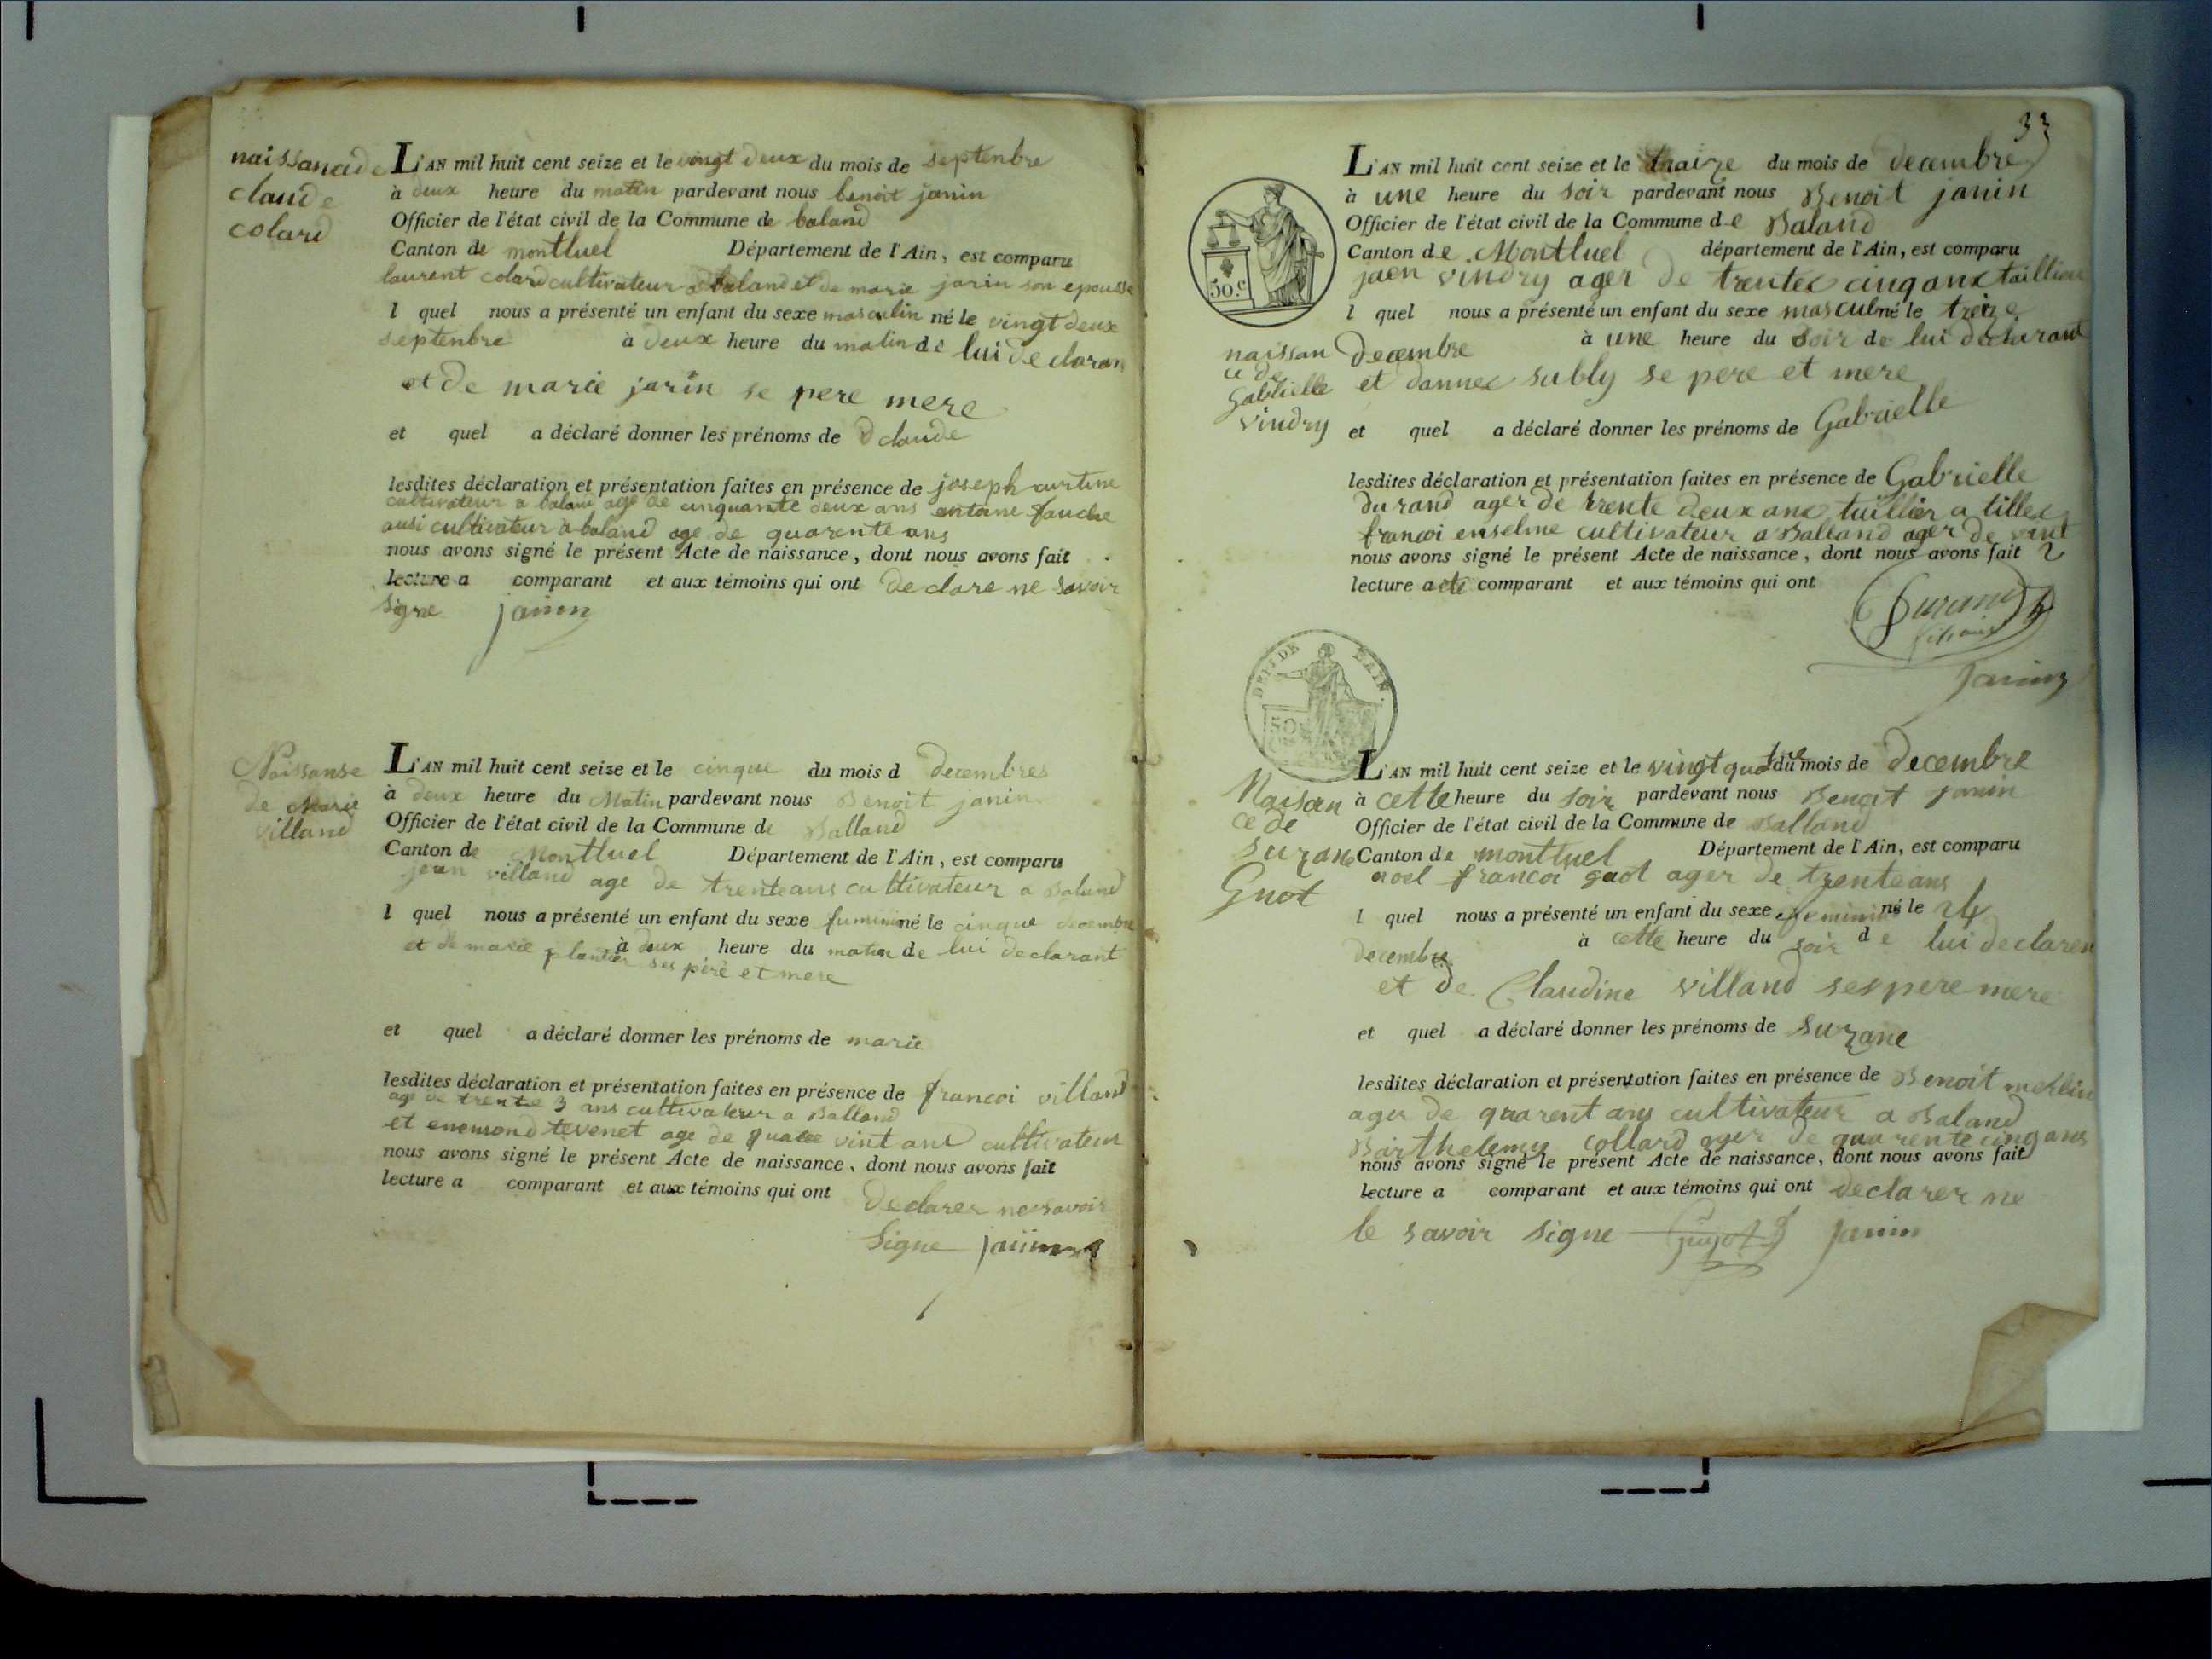 naissance de
claude
colard
L'AN mil huit cent seize et le vingt deux du mois de septenbre
à deux heure du matin pardevant nous benoit janin
Officier de l'état civil de la Commune de baland
Canton de montluel Département de l'Ain, est comparu
laurent colard cultivateur a baland et de marie jarin son epousse
l quel nous a présenté un enfant du sexe masculin né le vingt deux
septenbre à deux heure du matin de lui declaran
et de marie jarin se pere mere
et quel a déclaré donner les prénoms de claude
lesdites déclaration et présentation faites en présence de joseph
cultivateur a balan age de cinquante deux ans antoine fauche
ausi cultivateur a baland age de quarente ans
nous avons signé le présent Acte de naissance, dont nous avons fait
lecture a comparant et aux témoins qui ont declare ne savoir
signe janin
Naissanse
de Marie
villand
L'AN mil huit cent seize et le cinque du mois d decembres
à deux heure du Matin pardevant nous Benoit janin
Officier de l'état civil de la Commune de Balland
Canton de Montluel Département de l'Ain, est comparu
jean villand age de trente ans cultivateur a Baland
l quel nous a présenté un enfant du sexe né le cinque decembre
et de marie plantier à deux heure du matin de lui declarant
ses père et mere
et quel a déclaré donner les prénoms de marie
lesdites déclaration et présentation faites en présence de francoi villand
age de trente 3 ans cultivateur a Balland
et enemond tevenet age de quatre vint ans cultivateur
nous avons signé le présent Acte de naissance, dont nous avons fait
lecture a comparant et aux témoins qui ont declarer ne savoir
Signe janin
33
50.c
naissan
ce de
Gabrielle
vindry
L'AN mil huit cent seize et le traize du mois de decembre
à une heure du soir pardevant nous Benoit janin
Officier de l'état civil de la Commune de Baland
Canton de Montluel département de l'Ain, est comparu
jaen vindry ager de trentes cinq ans
l quel nous a présenté un enfant du sexe mascul né le treize
decembre à une heure du soir de lui declarant
et dannee subly se pere et mere
et quel a déclaré donner les prénoms de Gabrielle
lesdites déclaration et présentation faites en présence de Gabrielle
durand ager de trente deux ans tuillier a tilles
francoi enselme cultivateur a Balland ager de vint
nous avons signé le présent Acte de naissance, dont nous avons fait 2
lecture a comparant et aux témoins qui ont
Durand
janin
DEPT DE L'AIN.
50
Naisan
ce de
suzane
Gnot
L'AN mil huit cent seize et le vingt quatre du mois de decembre
à cette heure du soir pardevant nous Benoit janin
Officier de l'état civil de la Commune de Balland
Canton de montluel Département de l'Ain, est comparu
noel francoi gnot ager de trente ans
l quel nous a présenté un enfant du sexe feminin né le 24
decembre à cette heure du soir de lui declaren
et de Claudine villand ses pere mere
et quel a déclaré donner les prénoms de suzane
lesdites déclaration et présentation faites en présence de Benoit
ager de quarent ans cultivateur a Baland
Barthelemy collard ager de quarente cinq ans
nous avons signé le présent Acte de naissance, dont nous avons fait
lecture a comparant et aux témoins qui ont declarer ne
le savoir signe Guyot janin